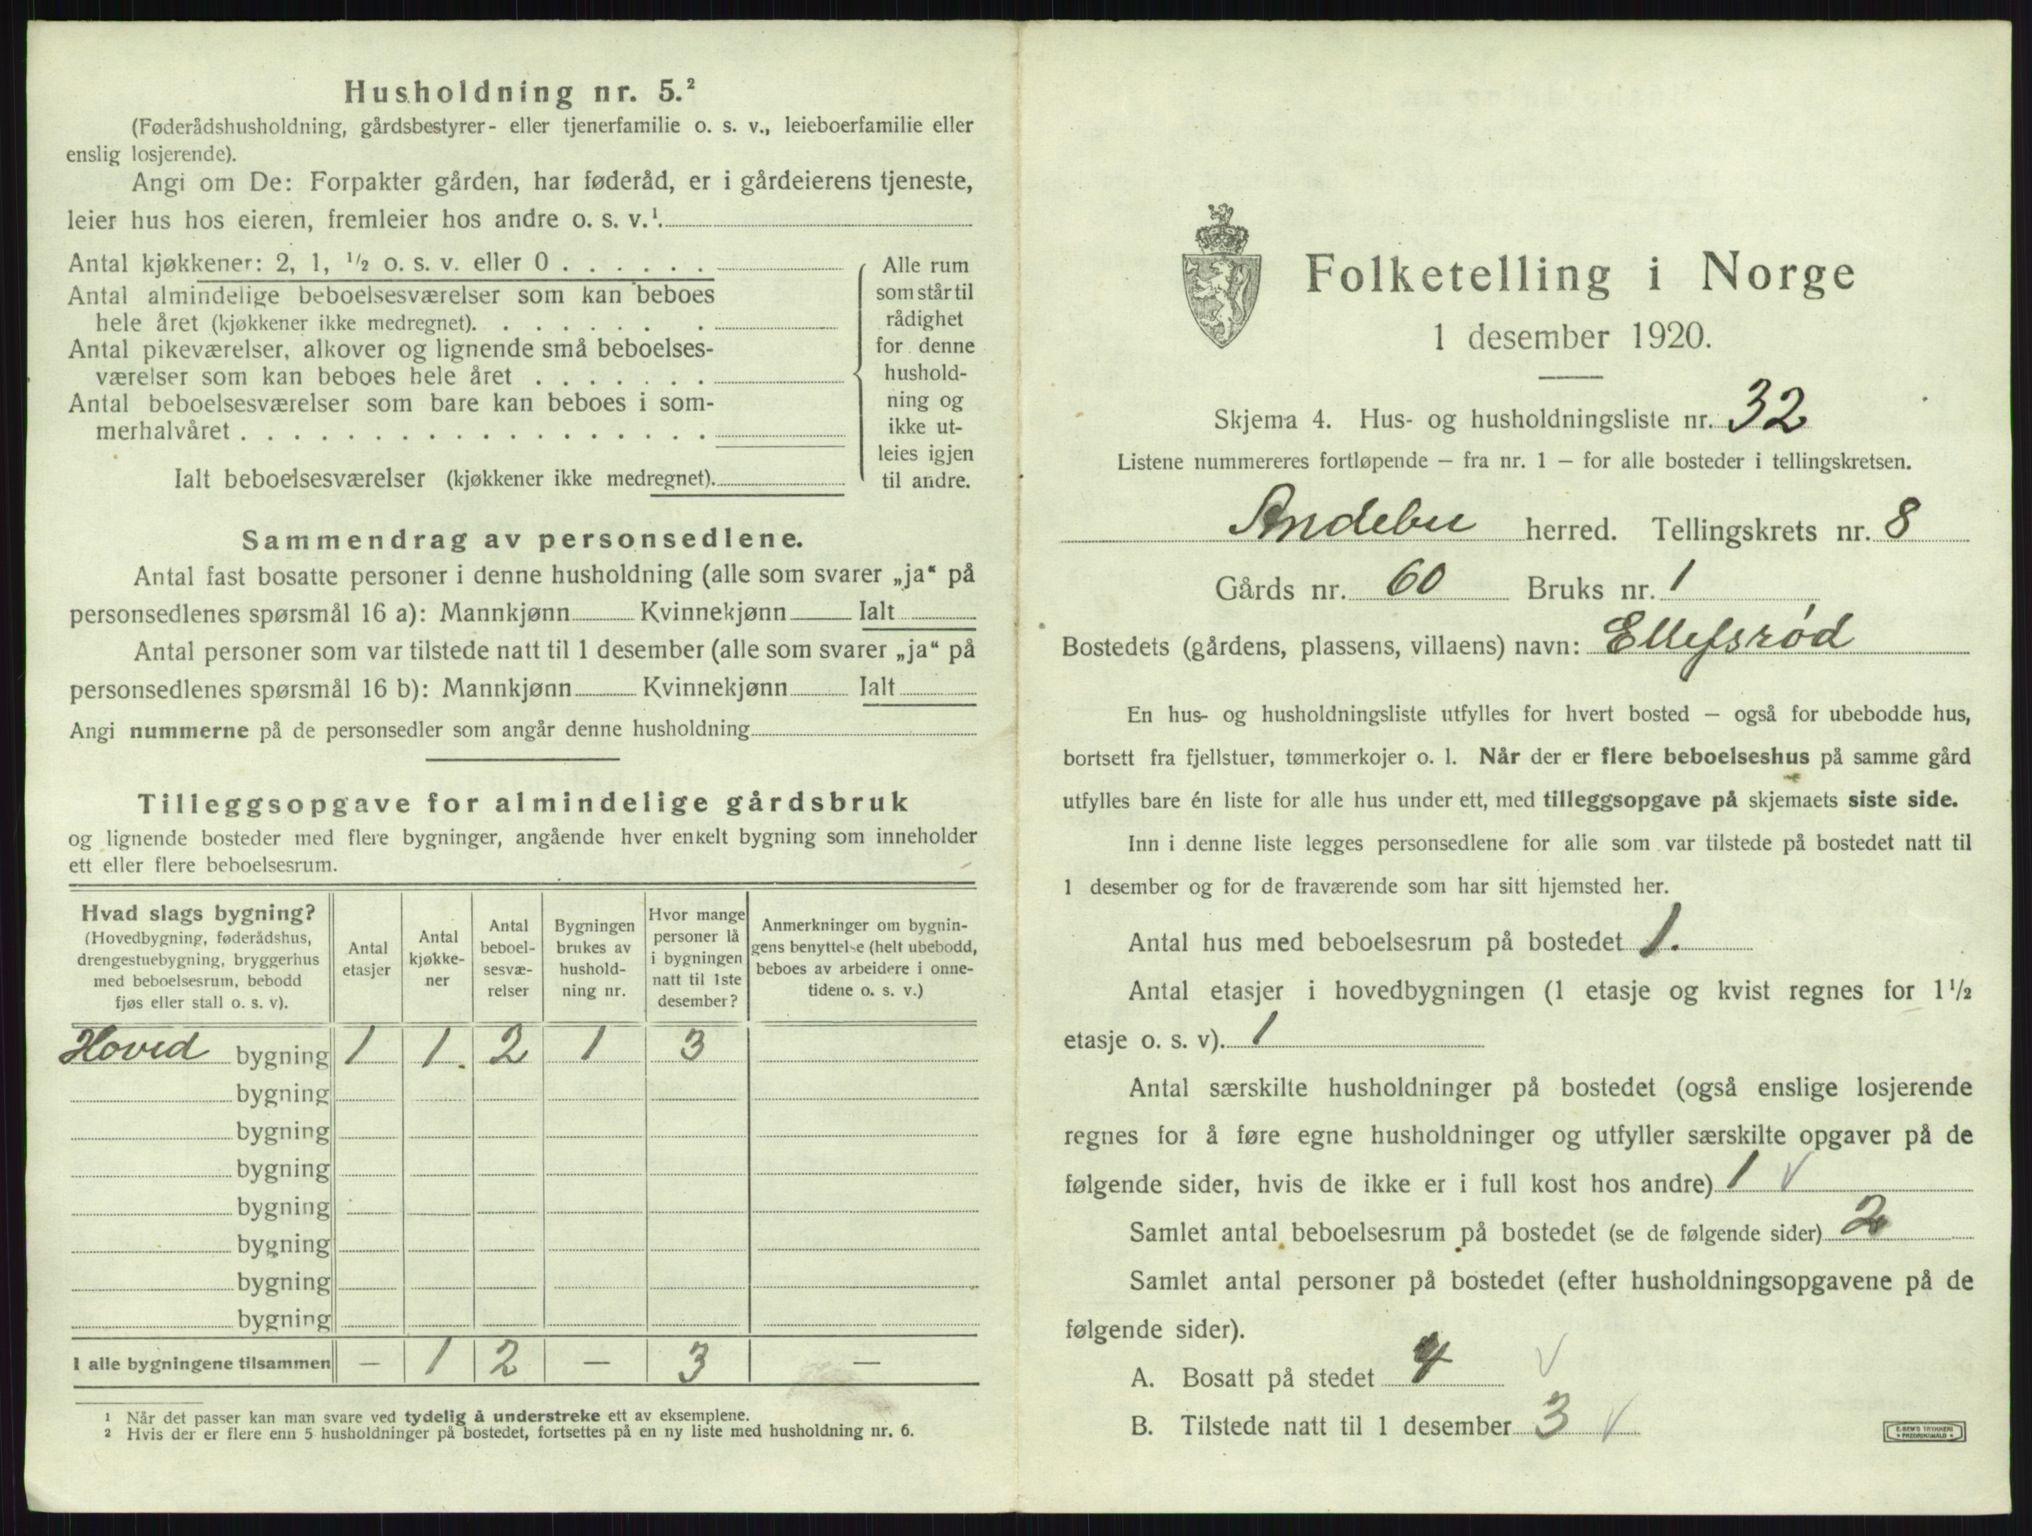 Husholdning nr. 5.²
(Føderådshusholdning, gårdsbestyrer- eller tjenerfamilie o. s. v., leieboerfamilie eller
enslig losjerende).
Angi om De: Forpakter gården, har føderåd, er i gårdeierens tjeneste,
leier hus hos eieren, fremleier hos andre o. s. v.¹.
Antal kjøkkener: 2, 1, ½ o. s. v. eller 0 . . . . . .
Antal almindelige beboelsesværelser som kan beboes
hele året (kjøkkener ikke medregnet). . . . . . . .
Antal pikeværelser, alkover og lignende små beboelses-
værelser som kan beboes hele året . . . . . . .
Antal beboelsesværelser som bare kan beboes i som-
merhalvåret . . . . . . . . . . . . . . . . . .
Ialt beboelsesværelser (kjøkkener ikke medregnet).
Alle rum
som står til
rådighet
for denne
hushold-
ning og
ikke ut-
leies igjen
til andre.
Sammendrag av personsedlene.
Antal fast bosatte personer i denne husholdning (alle som svarer „ja“ på
personsedlenes spørsmål 16 a): Mannkjønn Kvinnekjønn Ialt
Antal personer som var tilstede natt til 1 desember (alle som svarer „ja“ på
personsedlenes spørsmål 16 b): Mannkjønn Kvinnekjønn Ialt
Angi nummerne på de personsedler som angår denne husholdning
Tilleggsopgave for almindelige gårdsbruk
og lignende bosteder med flere bygninger, angående hver enkelt bygning som inneholder
ett eller flere beboelsesrum.
Hvad slags bygning?
(Hovedbygning, føderådshus,
drengestuebygning, bryggerhus
med beboelsesrum, bebodd
fjøs eller stall o. s. v).
Antal
etasjer
Antal
kjøkke-
ner
Antal
beboel-
sesvæ-
relser
Bygningen
brukes av
hushold-
ning nr.
Hvor mange
personer lå
i bygningen
natt til 1ste
desember?
Anmerkninger om bygnin-
gens benyttelse (helt ubebodd,
beboes av arbeidere i onne-
tidene o. s. v.)
Hoved bygning 1 1 2 1 3
bygning
bygning
bygning
bygning
bygning
bygning
bygning
I alle bygningene tilsammen — 1 2 — 3 —
¹ Når det passer kan man svare ved tydelig å understreke ett av eksemplene.
² Hvis der er flere enn 5 husholdninger på bostedet, fortsettes på en ny liste med husholdning nr. 6.
Folketelling i Norge
1 desember 1920.
Skjema 4. Hus- og husholdningsliste nr. 32
Listene nummereres fortløpende — fra nr. 1 — for alle bosteder i tellingskretsen.
Andebu herred. Tellingskrets nr. 8
Gårds nr. 60 Bruks nr. 1
Bostedets (gårdens, plassens, villaens) navn: Ellefsrød
En hus- og husholdningsliste utfylles for hvert bosted — også for ubebodde hus,
bortsett fra fjellstuer, tømmerkojer o. l. Når der er flere beboelseshus på samme gård
utfylles bare én liste for alle hus under ett, med tilleggsopgave på skjemaets siste side.
Inn i denne liste legges personsedlene for alle som var tilstede på bostedet natt til
1 desember og for de fraværende som har sitt hjemsted her.
Antal hus med beboelsesrum på bostedet 1.
Antal etasjer i hovedbygningen (1 etasje og kvist regnes for 1½
etasje o. s. v). 1
Antal særskilte husholdninger på bostedet (også enslige losjerende
regnes for å føre egne husholdninger og utfyller særskilte opgaver på de
følgende sider, hvis de ikke er i full kost hos andre) 1 √
Samlet antal beboelsesrum på bostedet (se de følgende sider) 2
Samlet antal personer på bostedet (efter husholdningsopgavene på de
følgende sider).
A. Bosatt på stedet 4 √
B. Tilstede natt til 1 desember 3 √
E. SEM'S TRYKKERI
FREDRIKSHALD